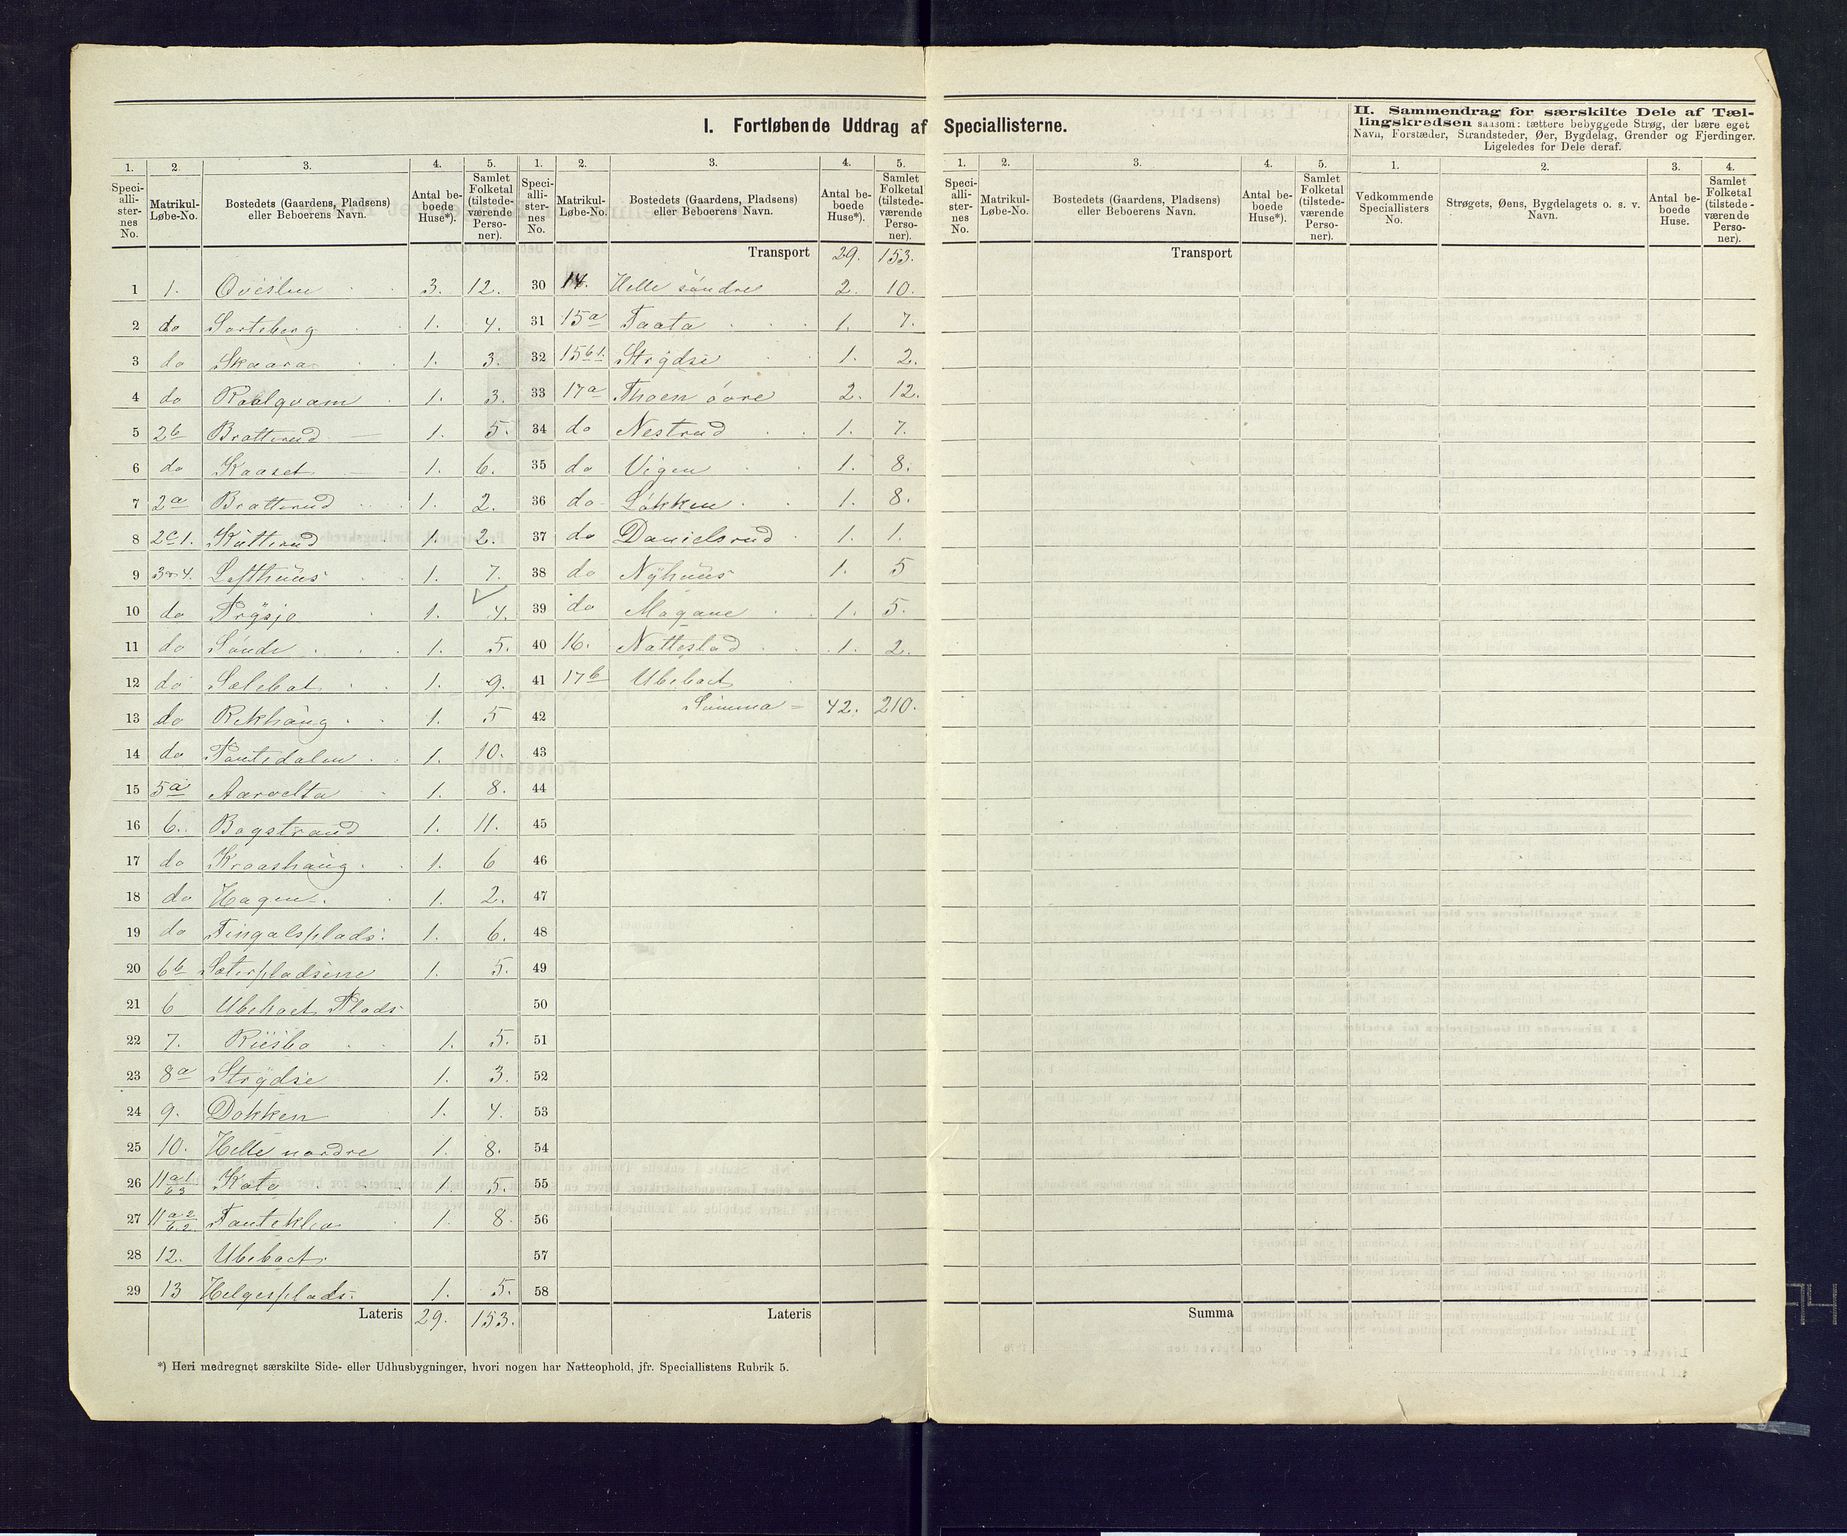 I. Fortløbende Uddrag af Speciallisterne.
II. Sammendrag for særskilte Dele af Tæl-
lingskredsen saasom: tættere bebyggede Strøg, der bære eget
Navn, Forstæder, Strandsteder, Øer, Bygdelag, Grender og Fjerdinger.
Ligeledes for Dele deraf.
1. 2. 3. 4. 5. 1. 2. 3. 4. 5. 1. 2. 3. 4. 5. 1. 2. 3. 4.
Speciallisternes No. Matrikul-Løbe-No. Bostedets (Gaardens, Pladsens) eller Beboerens Navn. Antal beboede Huse*). Samlet Folketal (tilstedeværende Personer).
Speciallisternes No. Matrikul-Løbe-No. Bostedets (Gaardens, Pladsens) eller Beboerens Navn. Antal beboede Huse*). Samlet Folketal (tilstedeværende Personer).
Speciallisternes No. Matrikul-Løbe-No. Bostedets (Gaardens, Pladsens) eller Beboerens Navn. Antal beboede Huse*). Samlet Folketal (tilstedeværende Personer).
Vedkommende Speciallisters No. Strøgets, Øens, Bygdelagets o. s. v. Navn. Antal beboede Huse. Samlet Folketal (tilstedeværende Personer).
1 1. Oveslen 3. 12.
2 do Sorteberg 1. 4.
3 do Skaara 1. 3.
4 do Roelqvam 1. 3.
5 2b Bratterud 1. 5.
6 do Kaaset 1. 6.
7 2a Bratterud 1. 2.
8 2c1. Kutterud 1. 2.
9 3 & 4. Lofthuus 1. 7.
10 do Prøsjo 1. 4.
11 do Sönde 1. 5.
12 do Sælebot 1. 9.
13 do Rekhaug 1. 5
14 do Tantedalen 1. 10.
15 5a Aarvelta 1. 8.
16 6. Bogstrand 1. 11.
17 do Kraashaug 1. 6
18 do Hagen 1. 2.
19 do Fingalsplads 1. 6.
20 6b Sæterpladsene 1. 5.
21 6 Ubeboet Plads
22 7. Ruesbo 1. 5.
23 8a Strydse 1. 3.
24 9. Dokken 1. 4.
25 10. Helle nordre 1. 8.
26 11 a.1 b3 Kato 1. 5.
27 11 a.2 b.2 Tanteklev 1. 8.
28 12. Ubeboet
29 13 Helgesplads 1. 5.
Lateris 29. 153.
Transport 29. 153.
30 14. Helle söndre 2. 10.
31 15a Taata 1. 7.
32 15b1. Strydse 1. 2.
33 17a Thoen övre 2. 12.
34 do Nestrud 1. 7.
35 do Vigen 1. 8.
36 do Løkken 1. 8.
37 do Danielsrud 1. 1.
38 do Nyhuus 1. 5
39 do Mogane 1. 5.
40 16. Nattestad 1. 2.
41 17b Ubeboet
42 Summa = 42. 210.
43
44
45
46
47
48
49
50
51
52
53
54
55
56
57
58
Lateris
Transport
Summa
*) Heri medregnet særskilte Side- eller Udhusbygninger, hvori nogen har Natteophold, jfr. Speciallistens Rubrik 5.